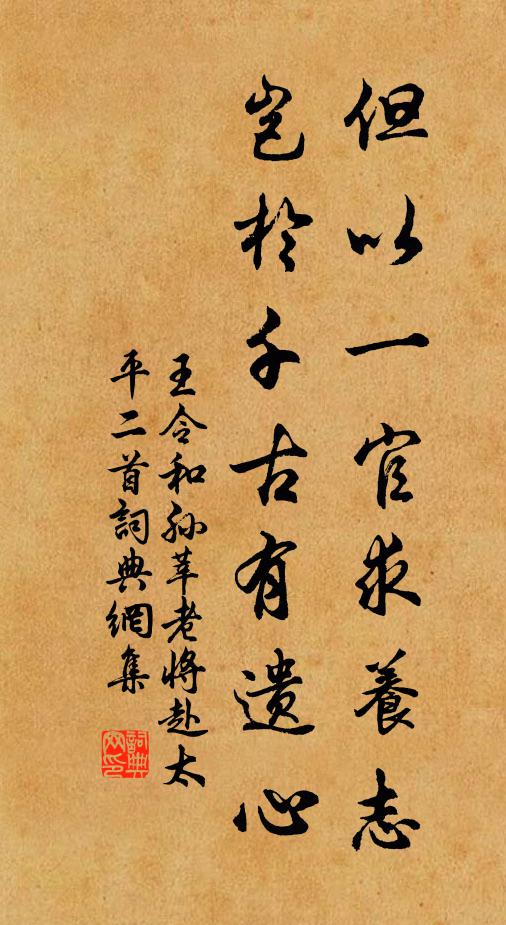 但以一官求養志
豈於千古有遺心
王令和孫莘老將赴太
平二首詞典網集
詞典網印